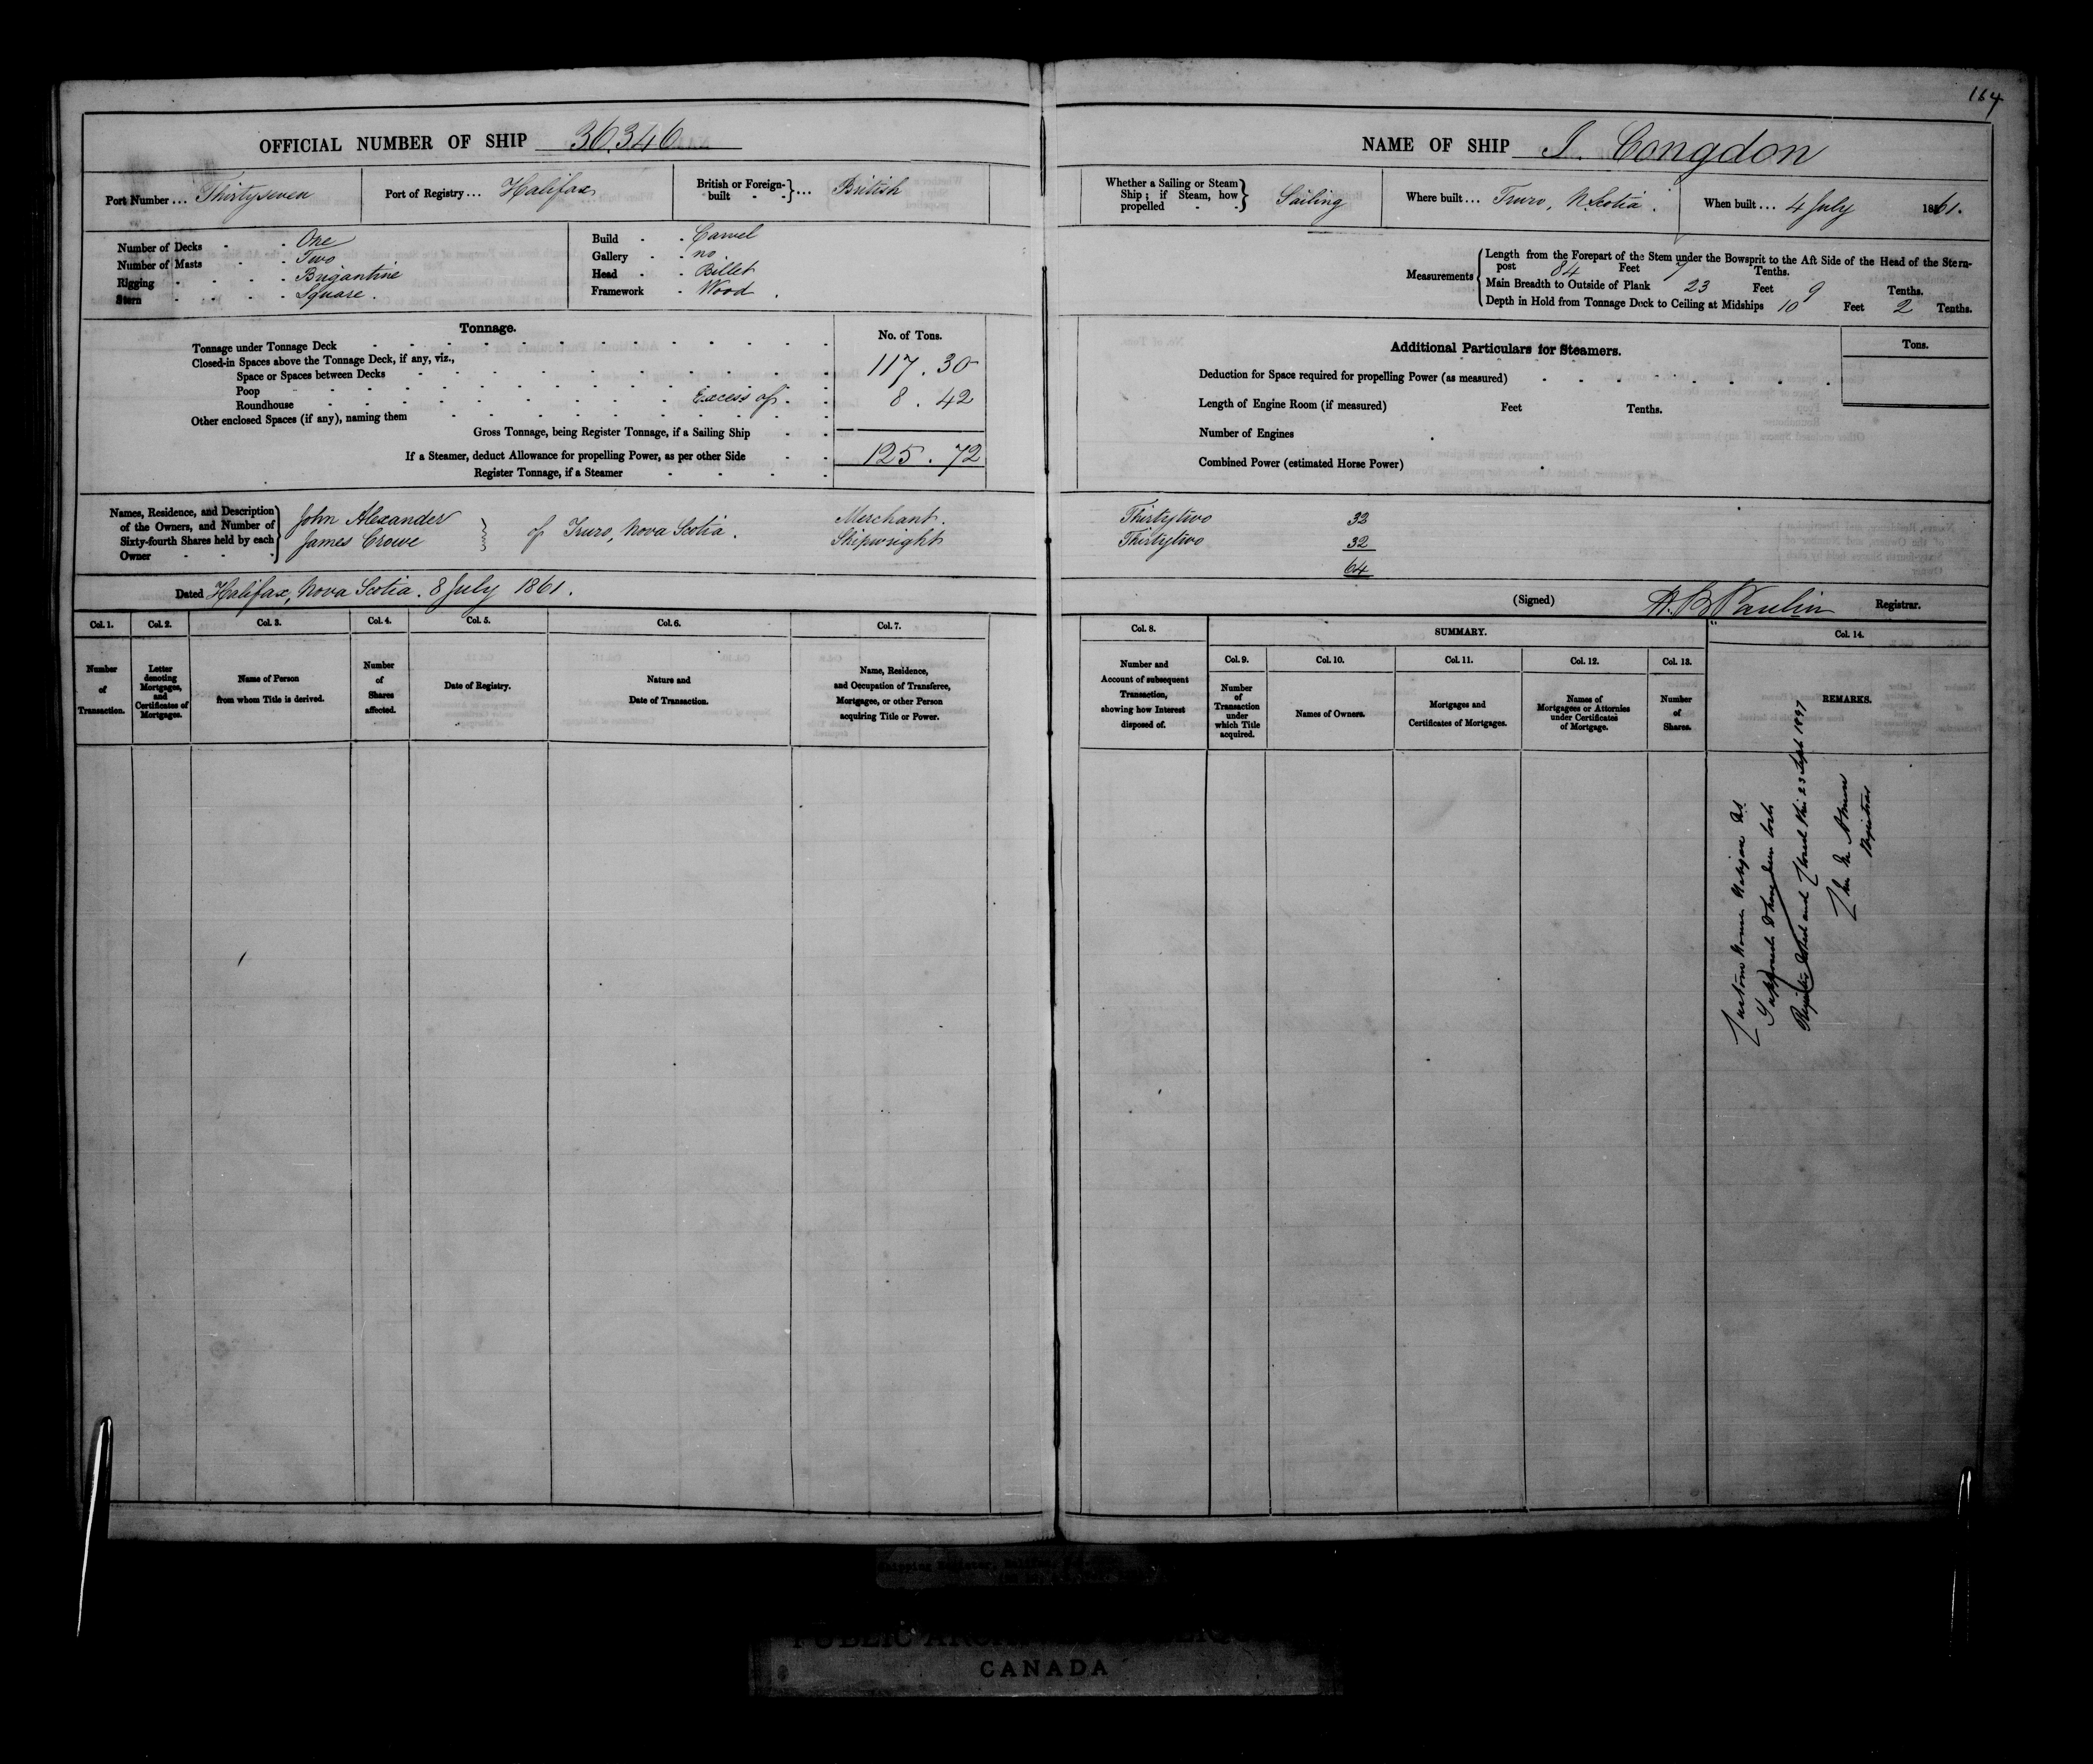 164
OFFICIAL NUMBER OF SHIP 36.346
Port Number ... Thirtyseven
Port of Registry ... Halifax
British or Foreign-built ... British
Number of Decks - - One
Number of Masts - - Two
Rigging - - - - Brigantine
Stern - - - - Square.
Build - - Carvel
Gallery - - no
Head - - Billet
Framework - Wood.
Tonnage.
No. of Tons.
Tonnage under Tonnage Deck
Closed-in Spaces above the Tonnage Deck, if any, viz.,
Space or Spaces between Decks 117.30
Poop
Roundhouse Excess of 8.42
Other enclosed Spaces (if any), naming them
Gross Tonnage, being Register Tonnage, if a Sailing Ship
If a Steamer, deduct Allowance for propelling Power, as per other Side 125.72
Register Tonnage, if a Steamer
NAME OF SHIP I. Congdon
Whether a Sailing or Steam Ship; if Steam, how propelled Sailing
Where built ... Truro, N. Scotia.
When built ... 4 July 1861.
Measurements
Length from the Forepart of the Stem under the Bowsprit to the Aft Side of the Head of the Stern-
post 84 Feet 7 Tenths.
Main Breadth to Outside of Plank 23 Feet 9 Tenths.
Depth in Hold from Tonnage Deck to Ceiling at Midships 10 Feet 2 Tenths.
Additional Particulars for Steamers.
Tons.
Deduction for Space required for propelling Power (as measured)
Length of Engine Room (if measured) Feet Tenths.
Number of Engines
Combined Power (estimated Horse Power)
Names, Residence, and Description
of the Owners, and Number of
Sixty-fourth Shares held by each
Owner
John Alexander Merchant. Thirtytwo 32
James Crowe of Truro, Nova Scotia. Shipwright Thirtytwo 32
64
Dated Halifax, Nova Scotia. 8 July 1861.
(Signed) H. B. Paulin Registrar.
Col. 1.
Number of Transaction.
Col. 2.
Letter denoting Mortgages, and Certificates of Mortgages.
Col. 3.
Name of Person from whom Title is derived.
Col. 4.
Number of Shares affected.
Col. 5.
Date of Registry.
Col. 6.
Nature and Date of Transaction.
Col. 7.
Name, Residence, and Occupation of Transferee, Mortgagee, or other Person acquiring Title or Power.
Col. 8.
Number and Account of subsequent Transaction, showing how Interest disposed of.
SUMMARY.
Col. 9.
Number of Transaction under which Title acquired.
Col. 10.
Names of Owners.
Col. 11.
Mortgages and Certificates of Mortgages.
Col. 12.
Names of Mortgagees or Attornies under Certificates of Mortgage.
Col. 13.
Number of Shares.
Col. 14.
REMARKS.
Custom House Halifax NS
Supposed to have been lost
Register Closed this 23 Sept 1897
Registrar
CANADA